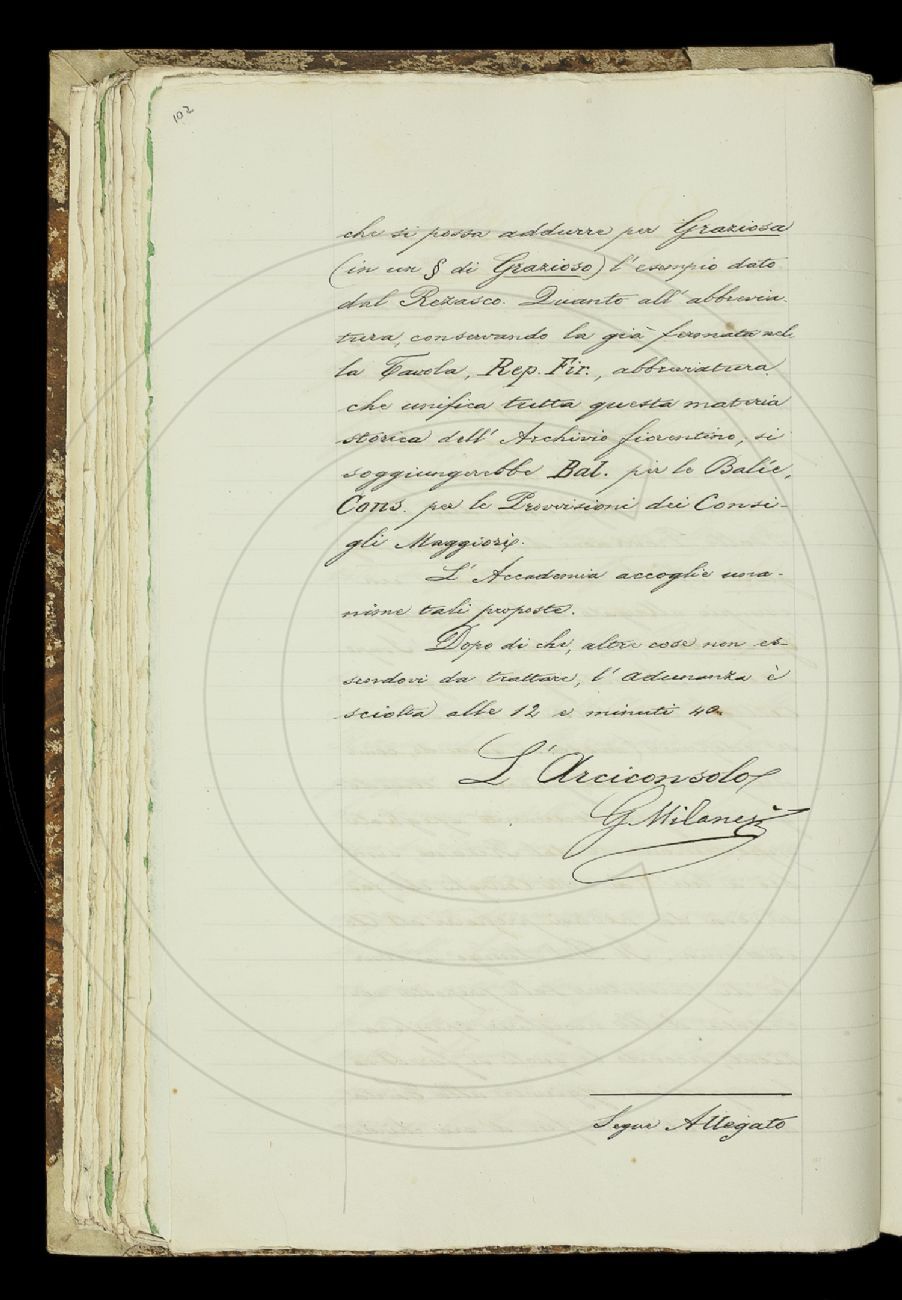 102
che si possa addurre per Graziosa
(in un § di Grazioso) l'esempio dato
dal Rezasco. Quanto all'abbrevia-
tura, conservando la già fermata nel-
la Tavola, Rep. Fir., abbreviatura
che unifica tutta questa materia
storica dell'Archivio fiorentino, si
soggiungerebbe Bal. per le Balíe,
Cons. per le Provvisioni dei Consi-
gli Maggiori.
L'Accademia accoglie una-
nime tali proposte.
Dopo di che, altre cose non es-
sendovi da trattare, l'adunanza è
sciolta alle 12 e minuti 40.
L'Arciconsolo
G Milanesi
Segue Allegato